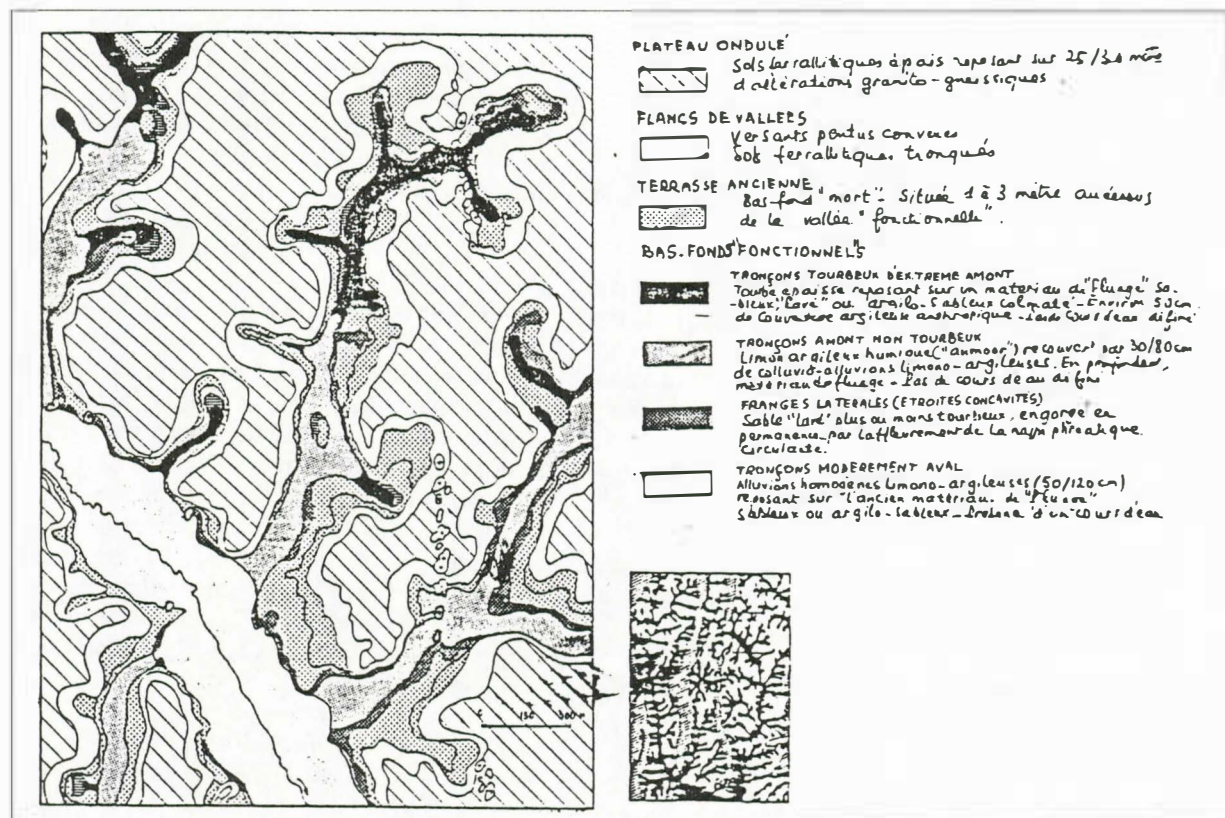 PLATEAU ONDULÉ
Sols ferrallitiques épais reposant sur 25/30 mètre
d'altérations granito-gneissiques
FLANCS DE VALLEES
Versants pentus convexes
Sols ferrallitiques tronqués
TERRASSE ANCIENNE
Bas-fond "mort" - Située 1 à 3 mètre au dessus
de la vallée "fonctionnelle".
BAS-FONDS "FONCTIONNELS"
TRONÇONS TOURBEUX D'EXTREME AMONT
Tourbe epaisse reposant sur un materiau de "fluage" sa-
-bleux "lavé" ou argilo-sableux colmaté - Environ 50cm
de couverture argileuse anthropique - cours d'eau défini
TRONÇONS AMONT NON TOURBEUX
Limon argileux humique ("anmoor") recouvert par 30/80cm
de colluvio-alluvions limono-argileuses. En profondeur,
materiau de fluage - Pas de cours d'eau défini
FRANGES LATERALES (ETROITES CONCAVITES)
Sable "lavé" plus ou moins tourbeux, engorgé en
permanence par l'affleurement de la nappe phréatique
circulante.
TRONÇONS MODEREMENT AVAL
Alluvions homogènes limono-argileuses (50/120cm)
reposant sur l'ancien matériau de "fluage"
sableux ou argilo-sableux - d'un cours d'eau
0 150 300 m